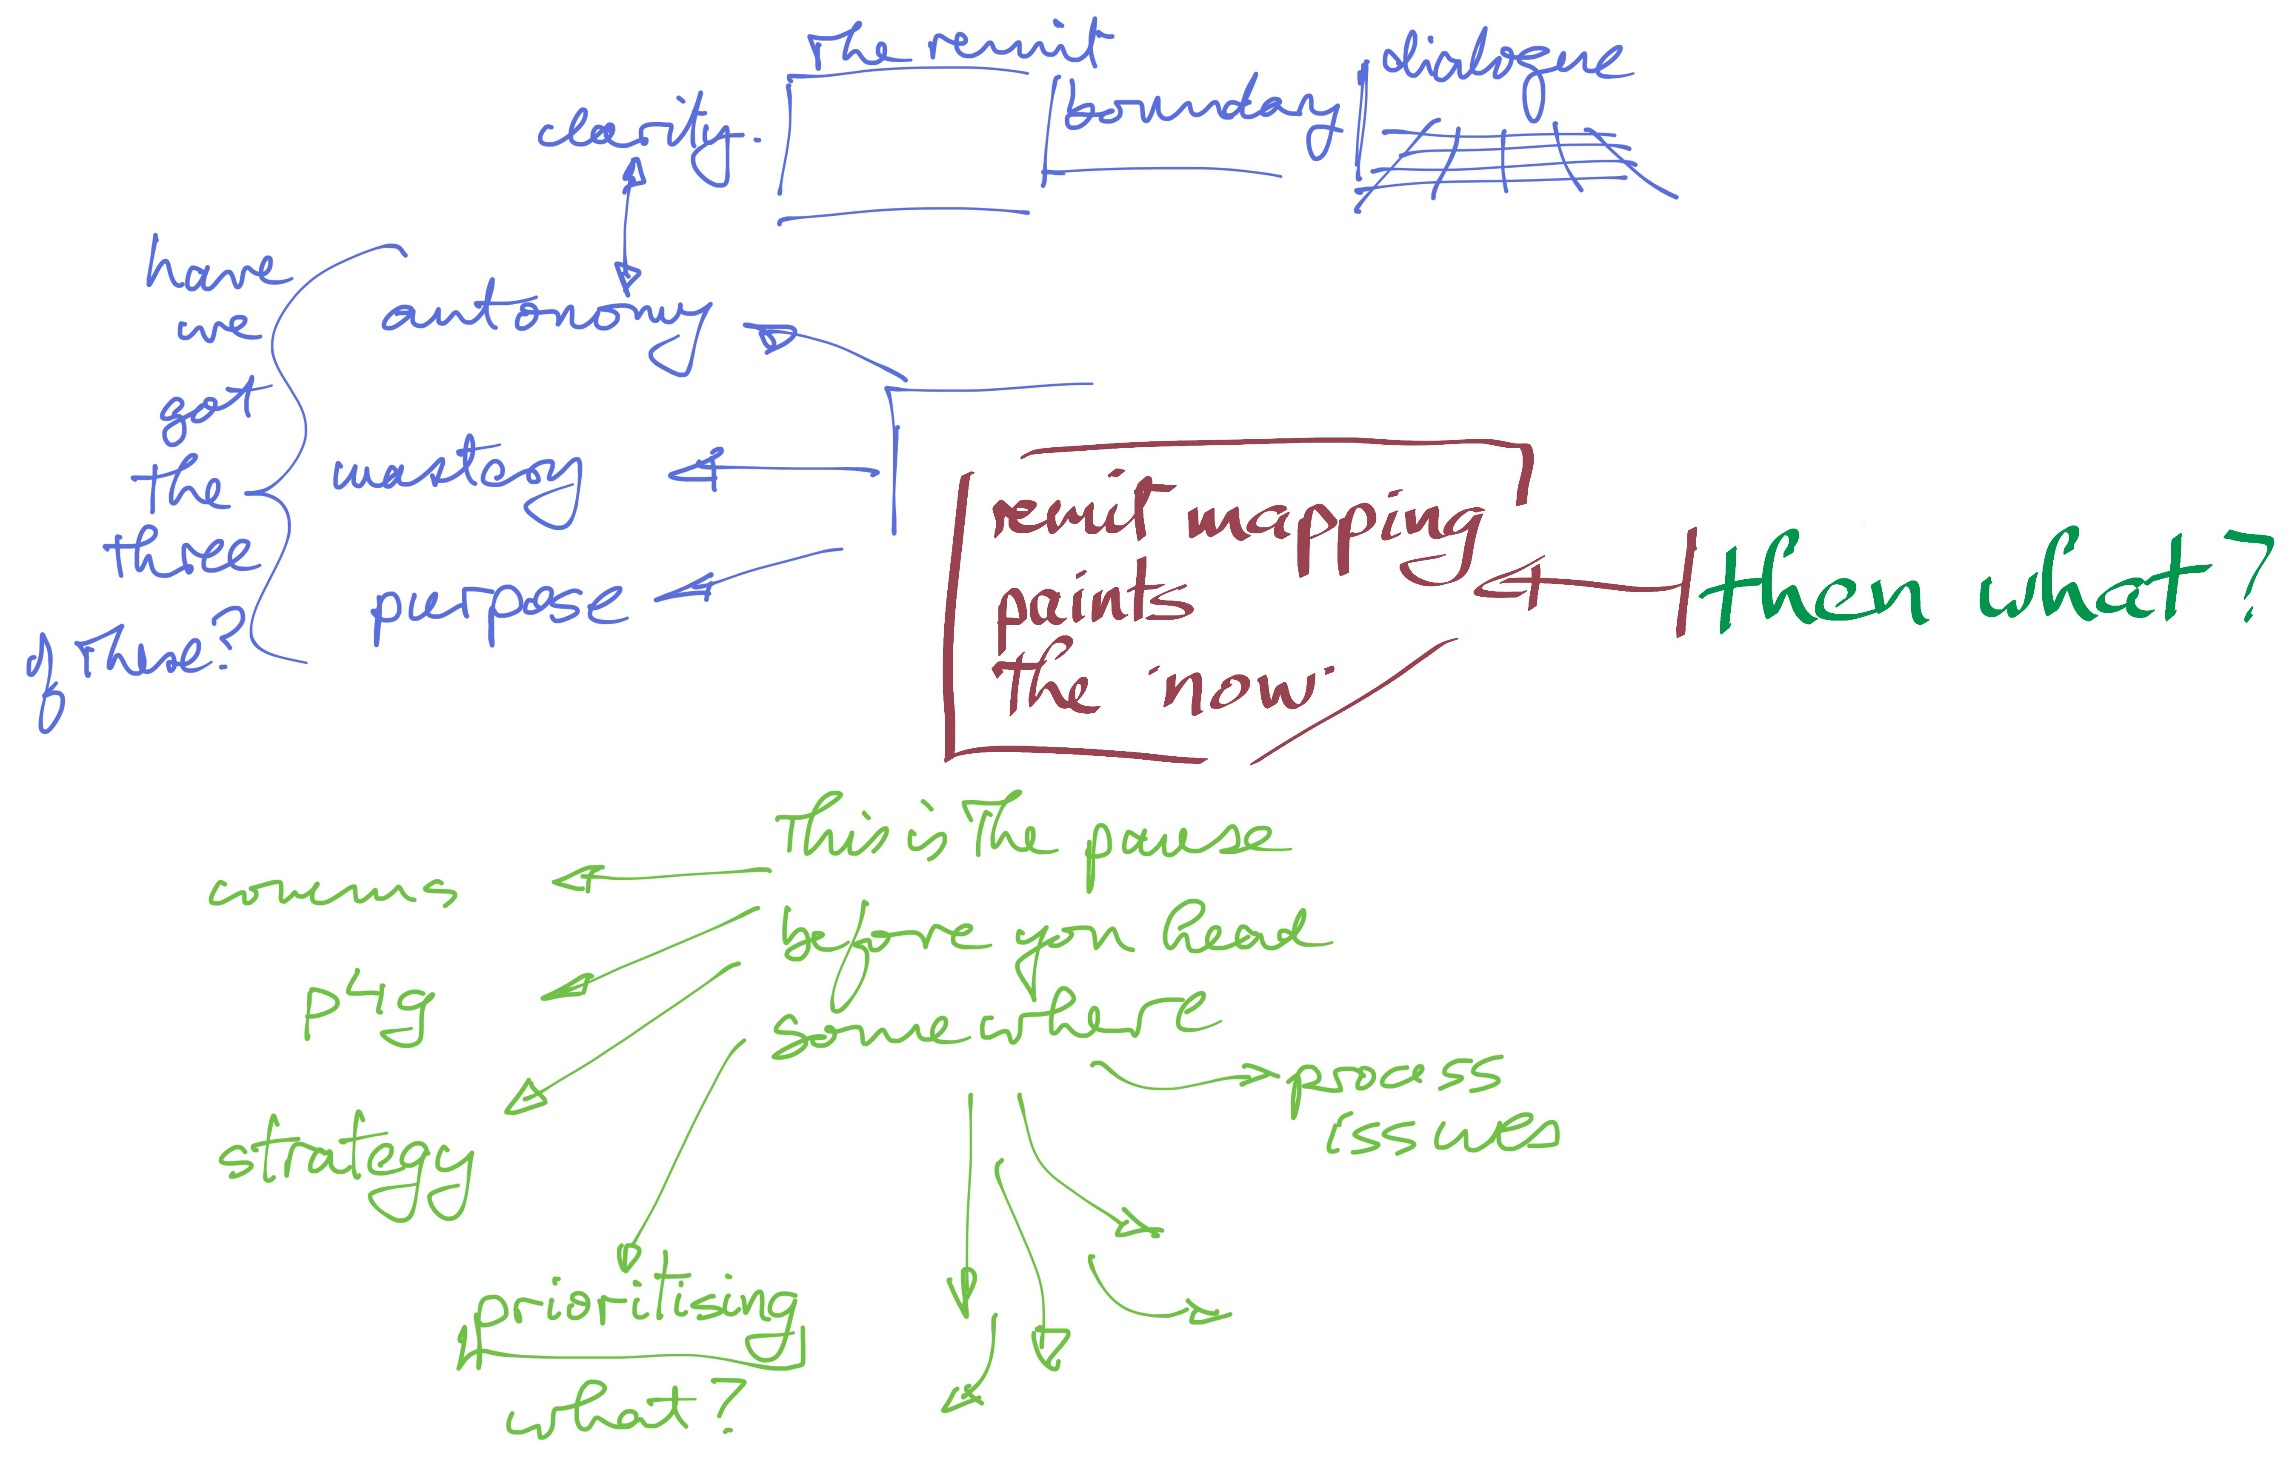 The remit
boundary
dialogue
clarity.
have
we
got
the
three
of these?
autonomy
mastery
purpose
remit mapping
paints
the 'now'
then what?
This is The pause
before you head
somewhere
comms
p4g
strategy
prioritising
what?
process
issues